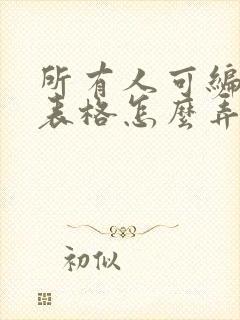 所有人可编
表格怎麽弄
初似